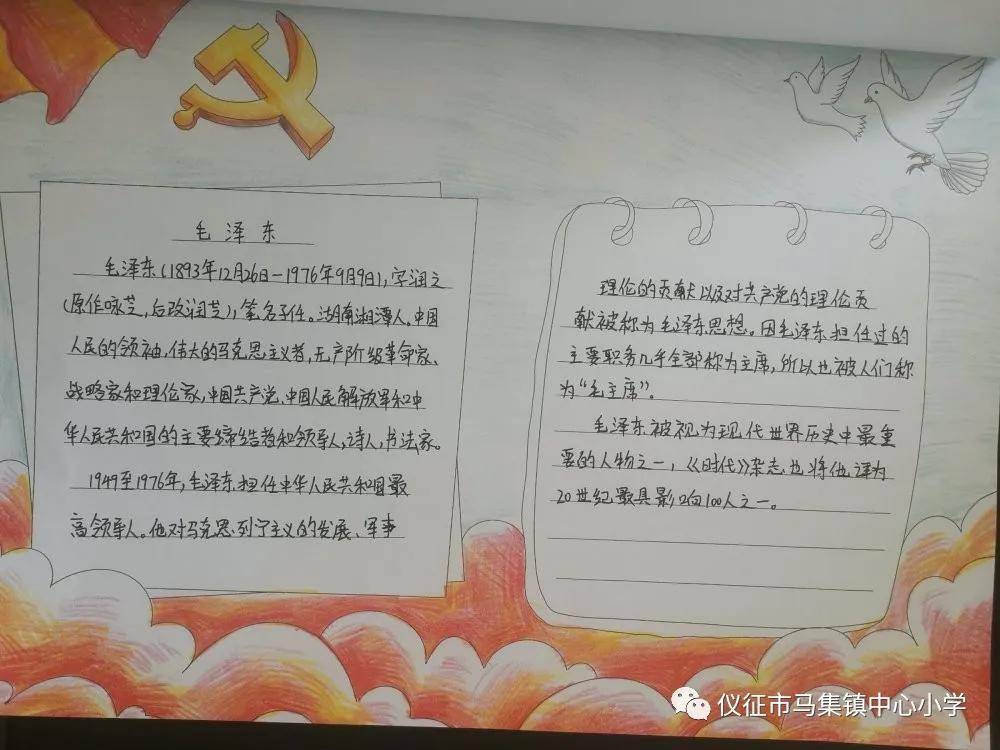 毛泽东
毛泽东(1893年12月26日-1976年9月9日),字润之
(原作咏芝,后改润芝),笔名子任。湖南湘潭人。中国
人民的领袖,伟大的马克思主义者,无产阶级革命家、
战略家和理论家,中国共产党、中国人民解放军和中
华人民共和国的主要缔结者和领导人,诗人,书法家。
1949至1976年,毛泽东担任中华人民共和国最
高领导人。他对马克思列宁主义的发展、军事
理伦的贡献以及对共产党的理伦贡
献被称为毛泽东思想。因毛泽东担任过的
主要职务几乎全部称为主席,所以也被人们称
为“毛主席”。
毛泽东被视为现代世界历史中最重
要的人物之一,《时代》杂志也将他评为
20世纪最具影响100人之一。
仪征市马集镇中心小学